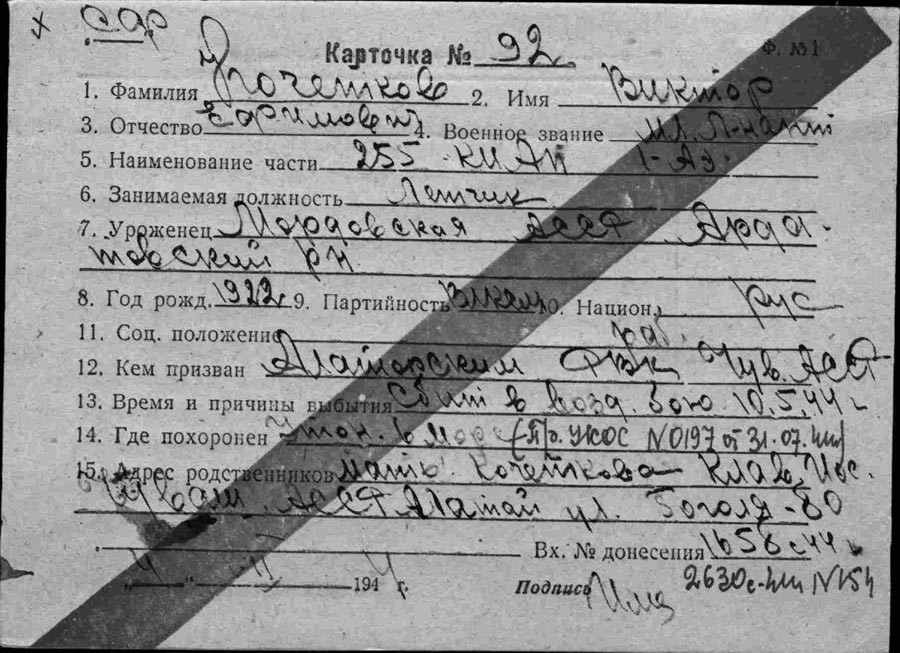 х сар
Карточка № 92 Ф. №1
1. Фамилия Кочетков 2. Имя Виктор
3. Отчество 4. Военное звание мл. л-нант
5. Наименование части 255 КИАП 1-АЭ.
6. Занимаемая должность Летчик
7. Уроженец Мордовская АССР Арда-
товский р-н
8. Год рожд. 1922 9. Партийность 10. Национ. рус
11. Соц. положение раб.
12. Кем призван Алаторским РВК Чув. АССР
13. Время и причины выбытия Сбит в возд. бою 10.5.44 г
14. Где похоронен Утон. в море (Пр. УКОС №0197 от 31.07.44)
15. Адрес родственников мать. Кочеткова Клав.
Чуваш. АССР ул. -80
Вх. № донесения 1656 с 44 г
" 4 " 11 194 4 г. Подпись 2630с-44 №154